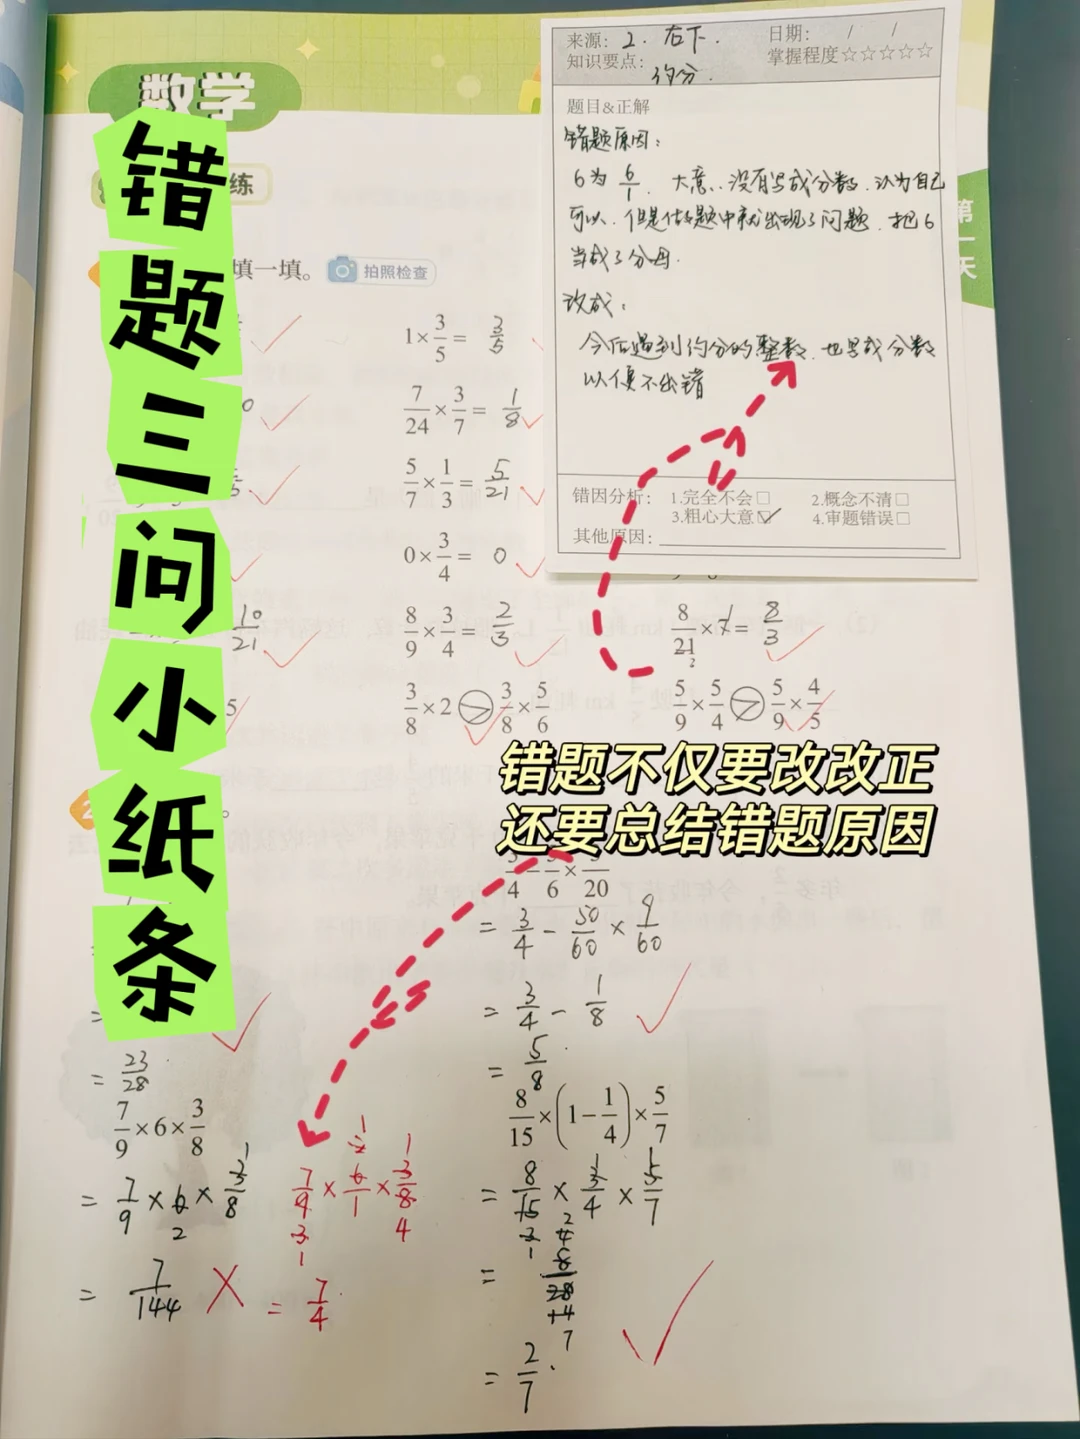 数学
错题三问小纸条
练
第一天
来源: 2. 右下.
日期: / /
知识要点: 约分.
掌握程度☆☆☆☆☆
题目&正解
错题原因:
6为 6/1. 大意..没有写成分数. 认为自己
可以. 但是做题中就出现了问题. 把6
当成了分母.
改成:
今后遇到约分的整数. 也写成分数
以便不出错
错因分析: 1.完全不会□ 2.概念不清□
3.粗心大意☑ 4.审题错误□
其他原因:
填一填。 拍照检查
1×3/5= 3/5
7/24×3/7= 1/8
5/7×1/3= 5/21
0×3/4= 0
10/21
8/9×3/4= 2/3
8/21×7= 8/3
5
3/8×2 > 3/8×5/6
5/9×5/4 > 5/9×4/5
错题不仅要改改正
还要总结错题原因
= 3/4 - 50/60 × 9/60
= 3/4 - 1/8
= 5/8
= 23/28
7/9×6×3/8
= 7/9 × 6 × 3/8
2
1
= 7/144
7/9 × 6/1 × 3/8
= 7/4
8/15×(1-1/4)×5/7
= 8/15 × 3/4 × 5/7
= 2/7